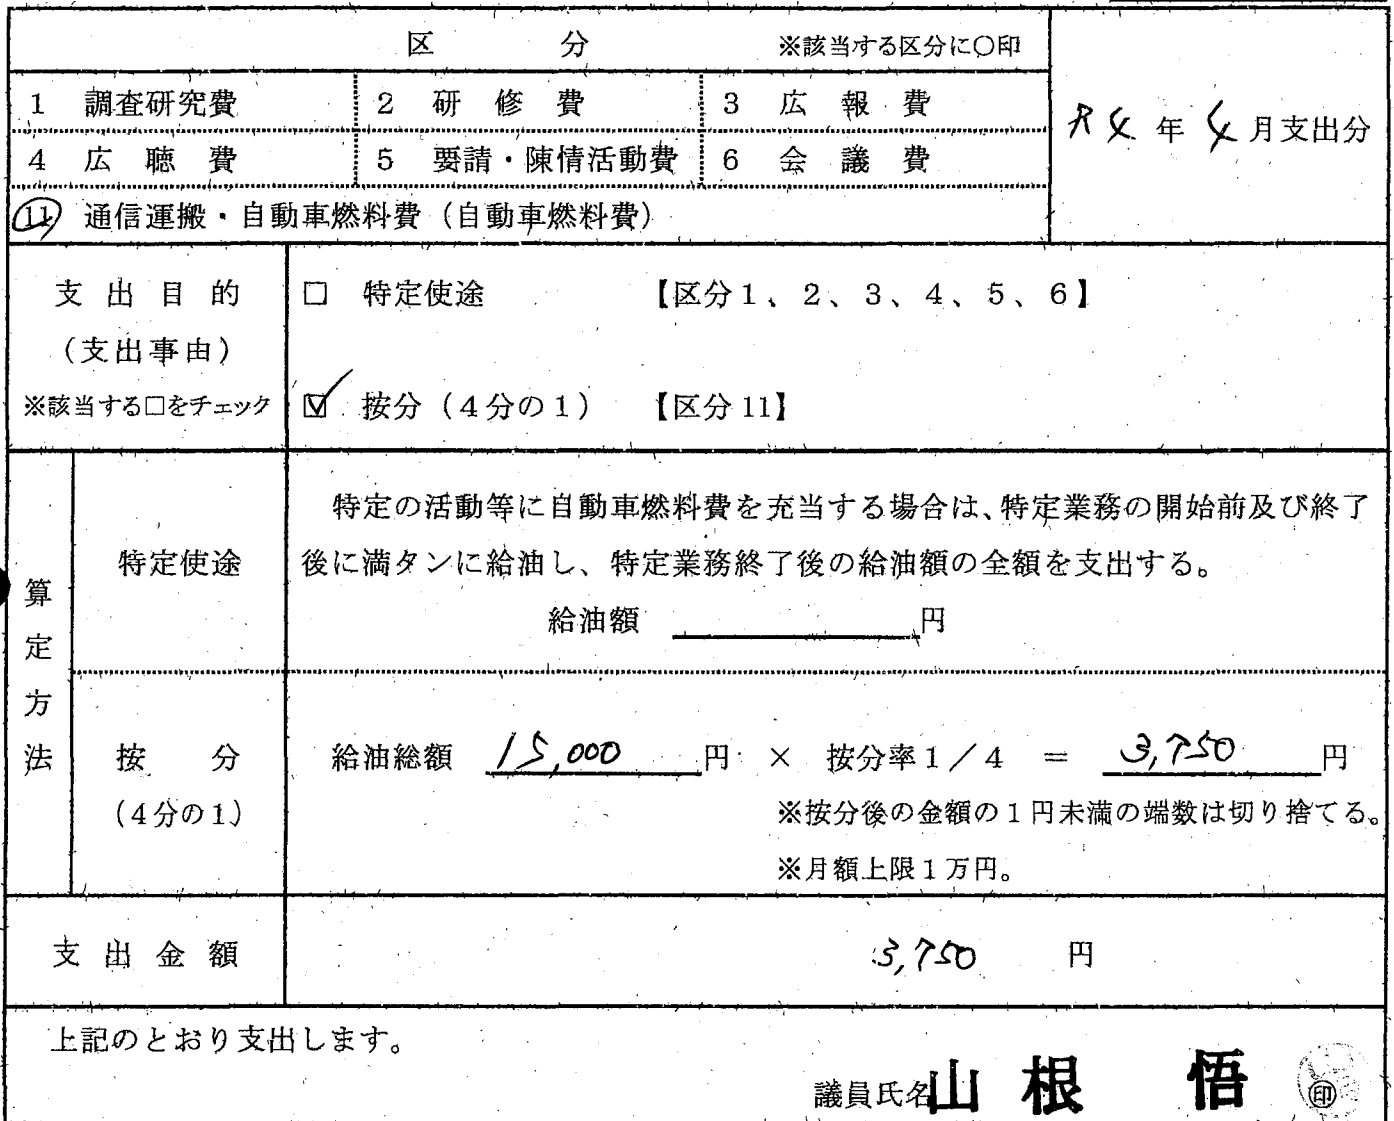 区　分　※該当する区分に○印
1　調査研究費　2　研修費　3　広報費
R4年4月支出分
4　広聴費　5　要請・陳情活動費　6　会議費
11　通信運搬・自動車燃料費（自動車燃料費）
支出目的
（支出事由）
※該当する□をチェック
□　特定使途　【区分1、2、3、4、5、6】
☑　按分（4分の1）　【区分11】
算定方法
特定使途
特定の活動等に自動車燃料費を充当する場合は、特定業務の開始前及び終了
後に満タンに給油し、特定業務終了後の給油額の全額を支出する。
給油額　円
按分
（4分の1）
給油総額　15,000　円　×　按分率1／4　＝　3,750　円
※按分後の金額の1円未満の端数は切り捨てる。
※月額上限1万円。
支出金額　3,750　円
上記のとおり支出します。
議員氏名　山根　悟　㊞